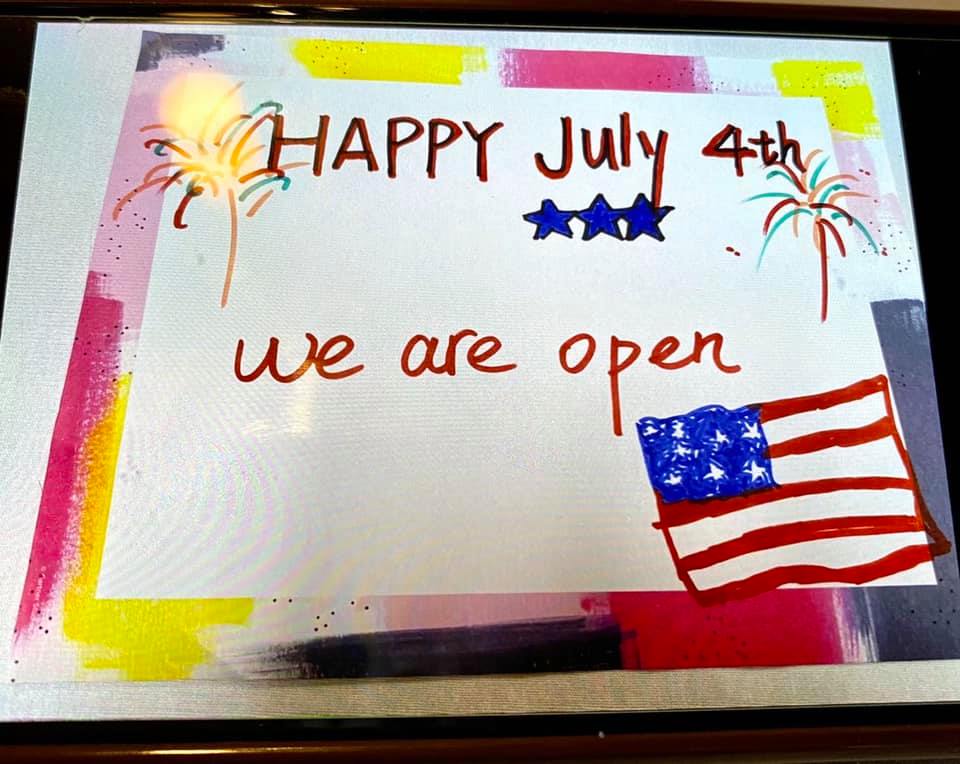 HAPPY July 4th
we are open